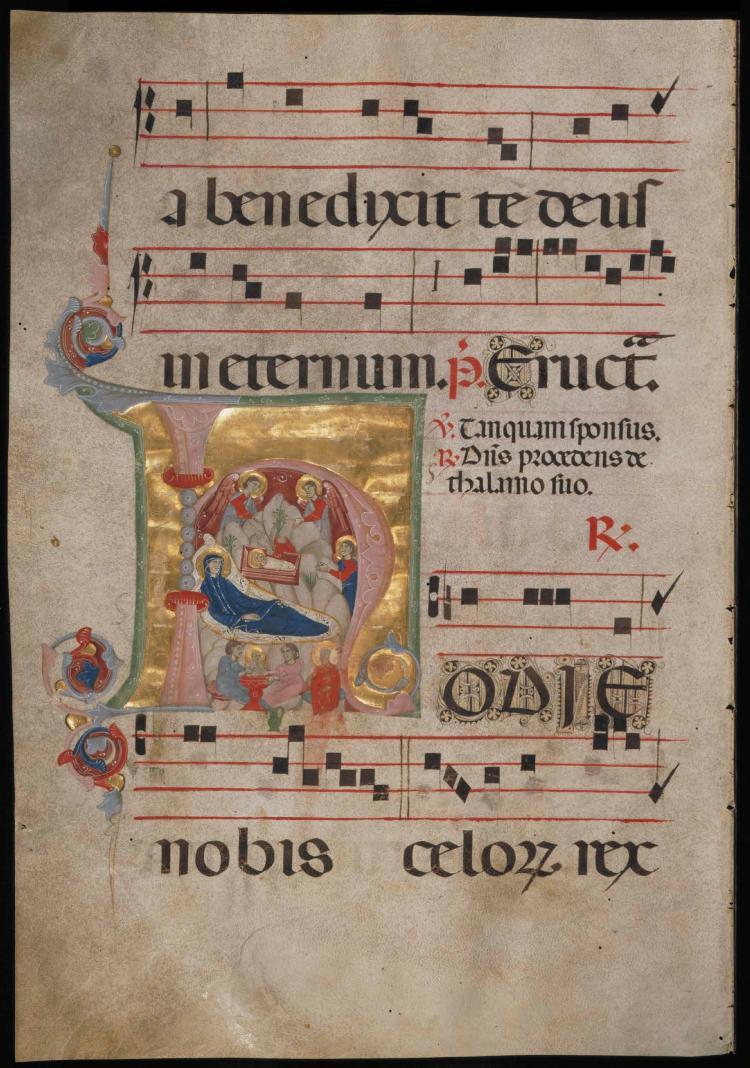 a benedixit te deus
in eternum. p̄. Eruct̄.
℣. Tanquam sponsus.
℞. Dn̄s procedens de
thalamo suo.
℞.
HODIE
nobis celoꝝ rex